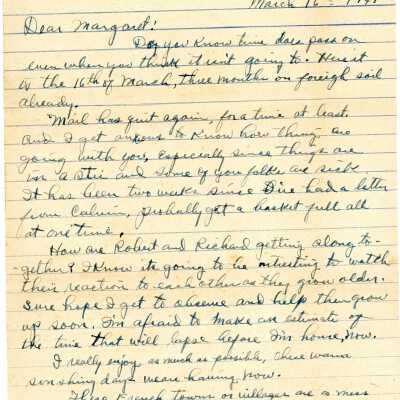 March 16
Dear Margaret!
Do you know time does pass on
even when you think it isn't going to. Here it
is the 16th of March, three months on foreign soil
already.
Mail has quit again, for a time at least.
and I get anxious to know how things are
going with you, especially since things are
in a stir and some of you folks are sick
It has been two weeks since I've had a letter
from Calvin, probally get a basket full all
at one time.
How are Robert and Richard getting along to-
gether? I know its going to be intresting to watch
their reaction to each other as they grow older.
Sure hope I get to observe and help them grow
up soon. I'm afraid to make an estimate of
the time that will lapse before I'm home, now.
I really enjoy as much as possible, these warm
sonshiny days weare having now.
These French towns or villages are a mess